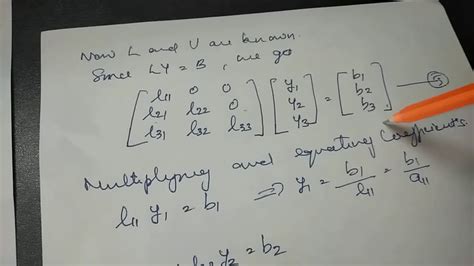 Now L and U are known.
Since LY = B, we get
[l11 0 0; l21 l22 0; l31 l32 l33] [y1; y2; y3] = [b1; b2; b3] — ⑤
Multiplying and equating coefficients
l11 y1 = b1 ⇒ y1 = b1/l11 = b1/a11
y2 = b2